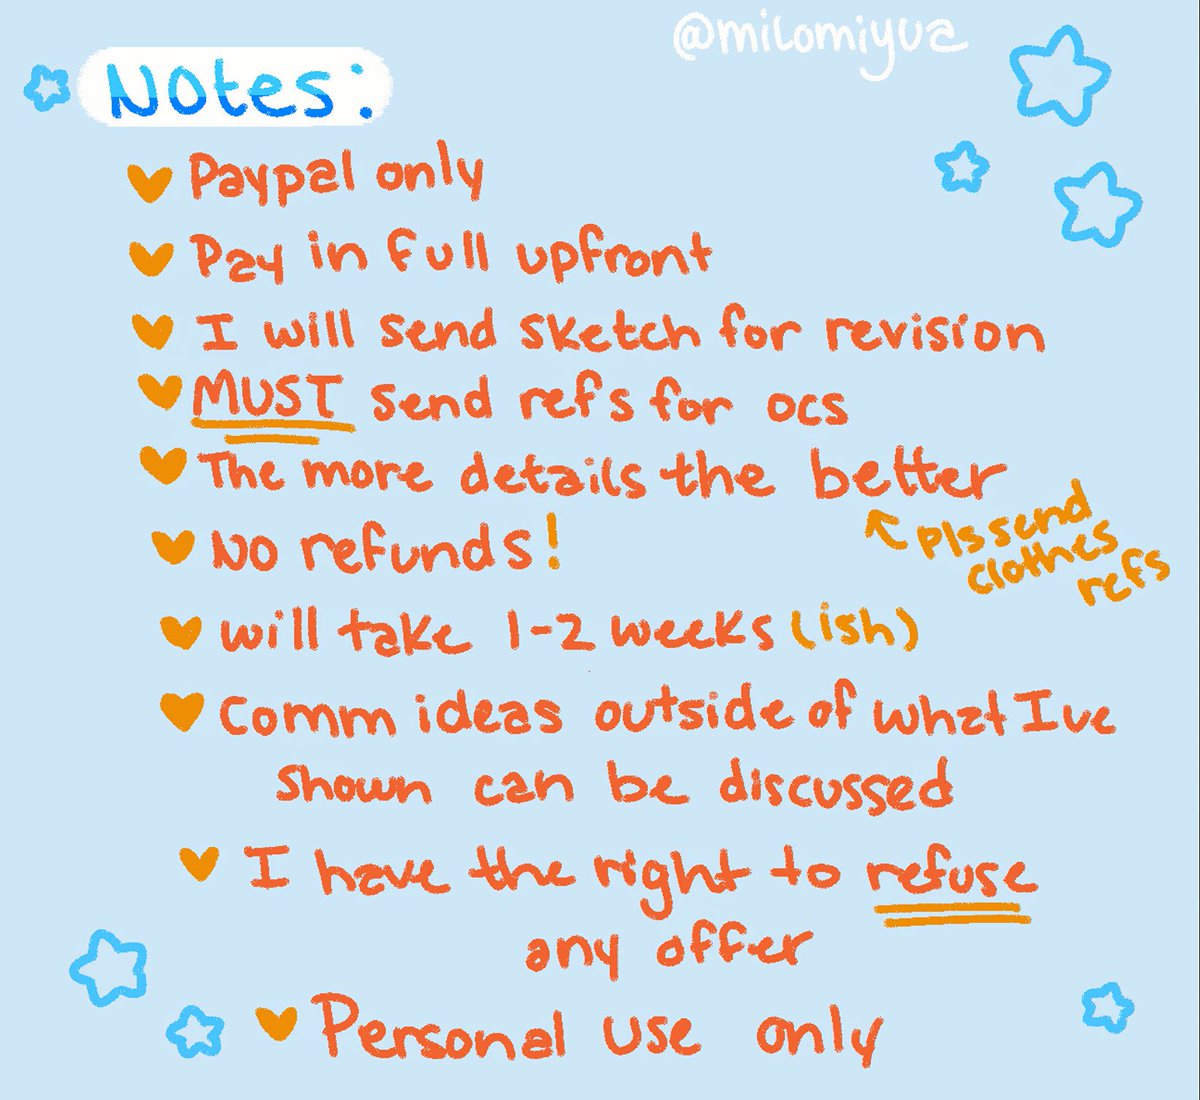 @milomiyua
Notes:
Paypal only
Pay in full upfront
I will send sketch for revision
MUST send refs for ocs
The more details the better
pls send
clothes
refs
No refunds!
will take 1-2 weeks (ish)
Comm ideas outside of what Ive
shown can be discussed
I have the right to refuse
any offer
Personal use only